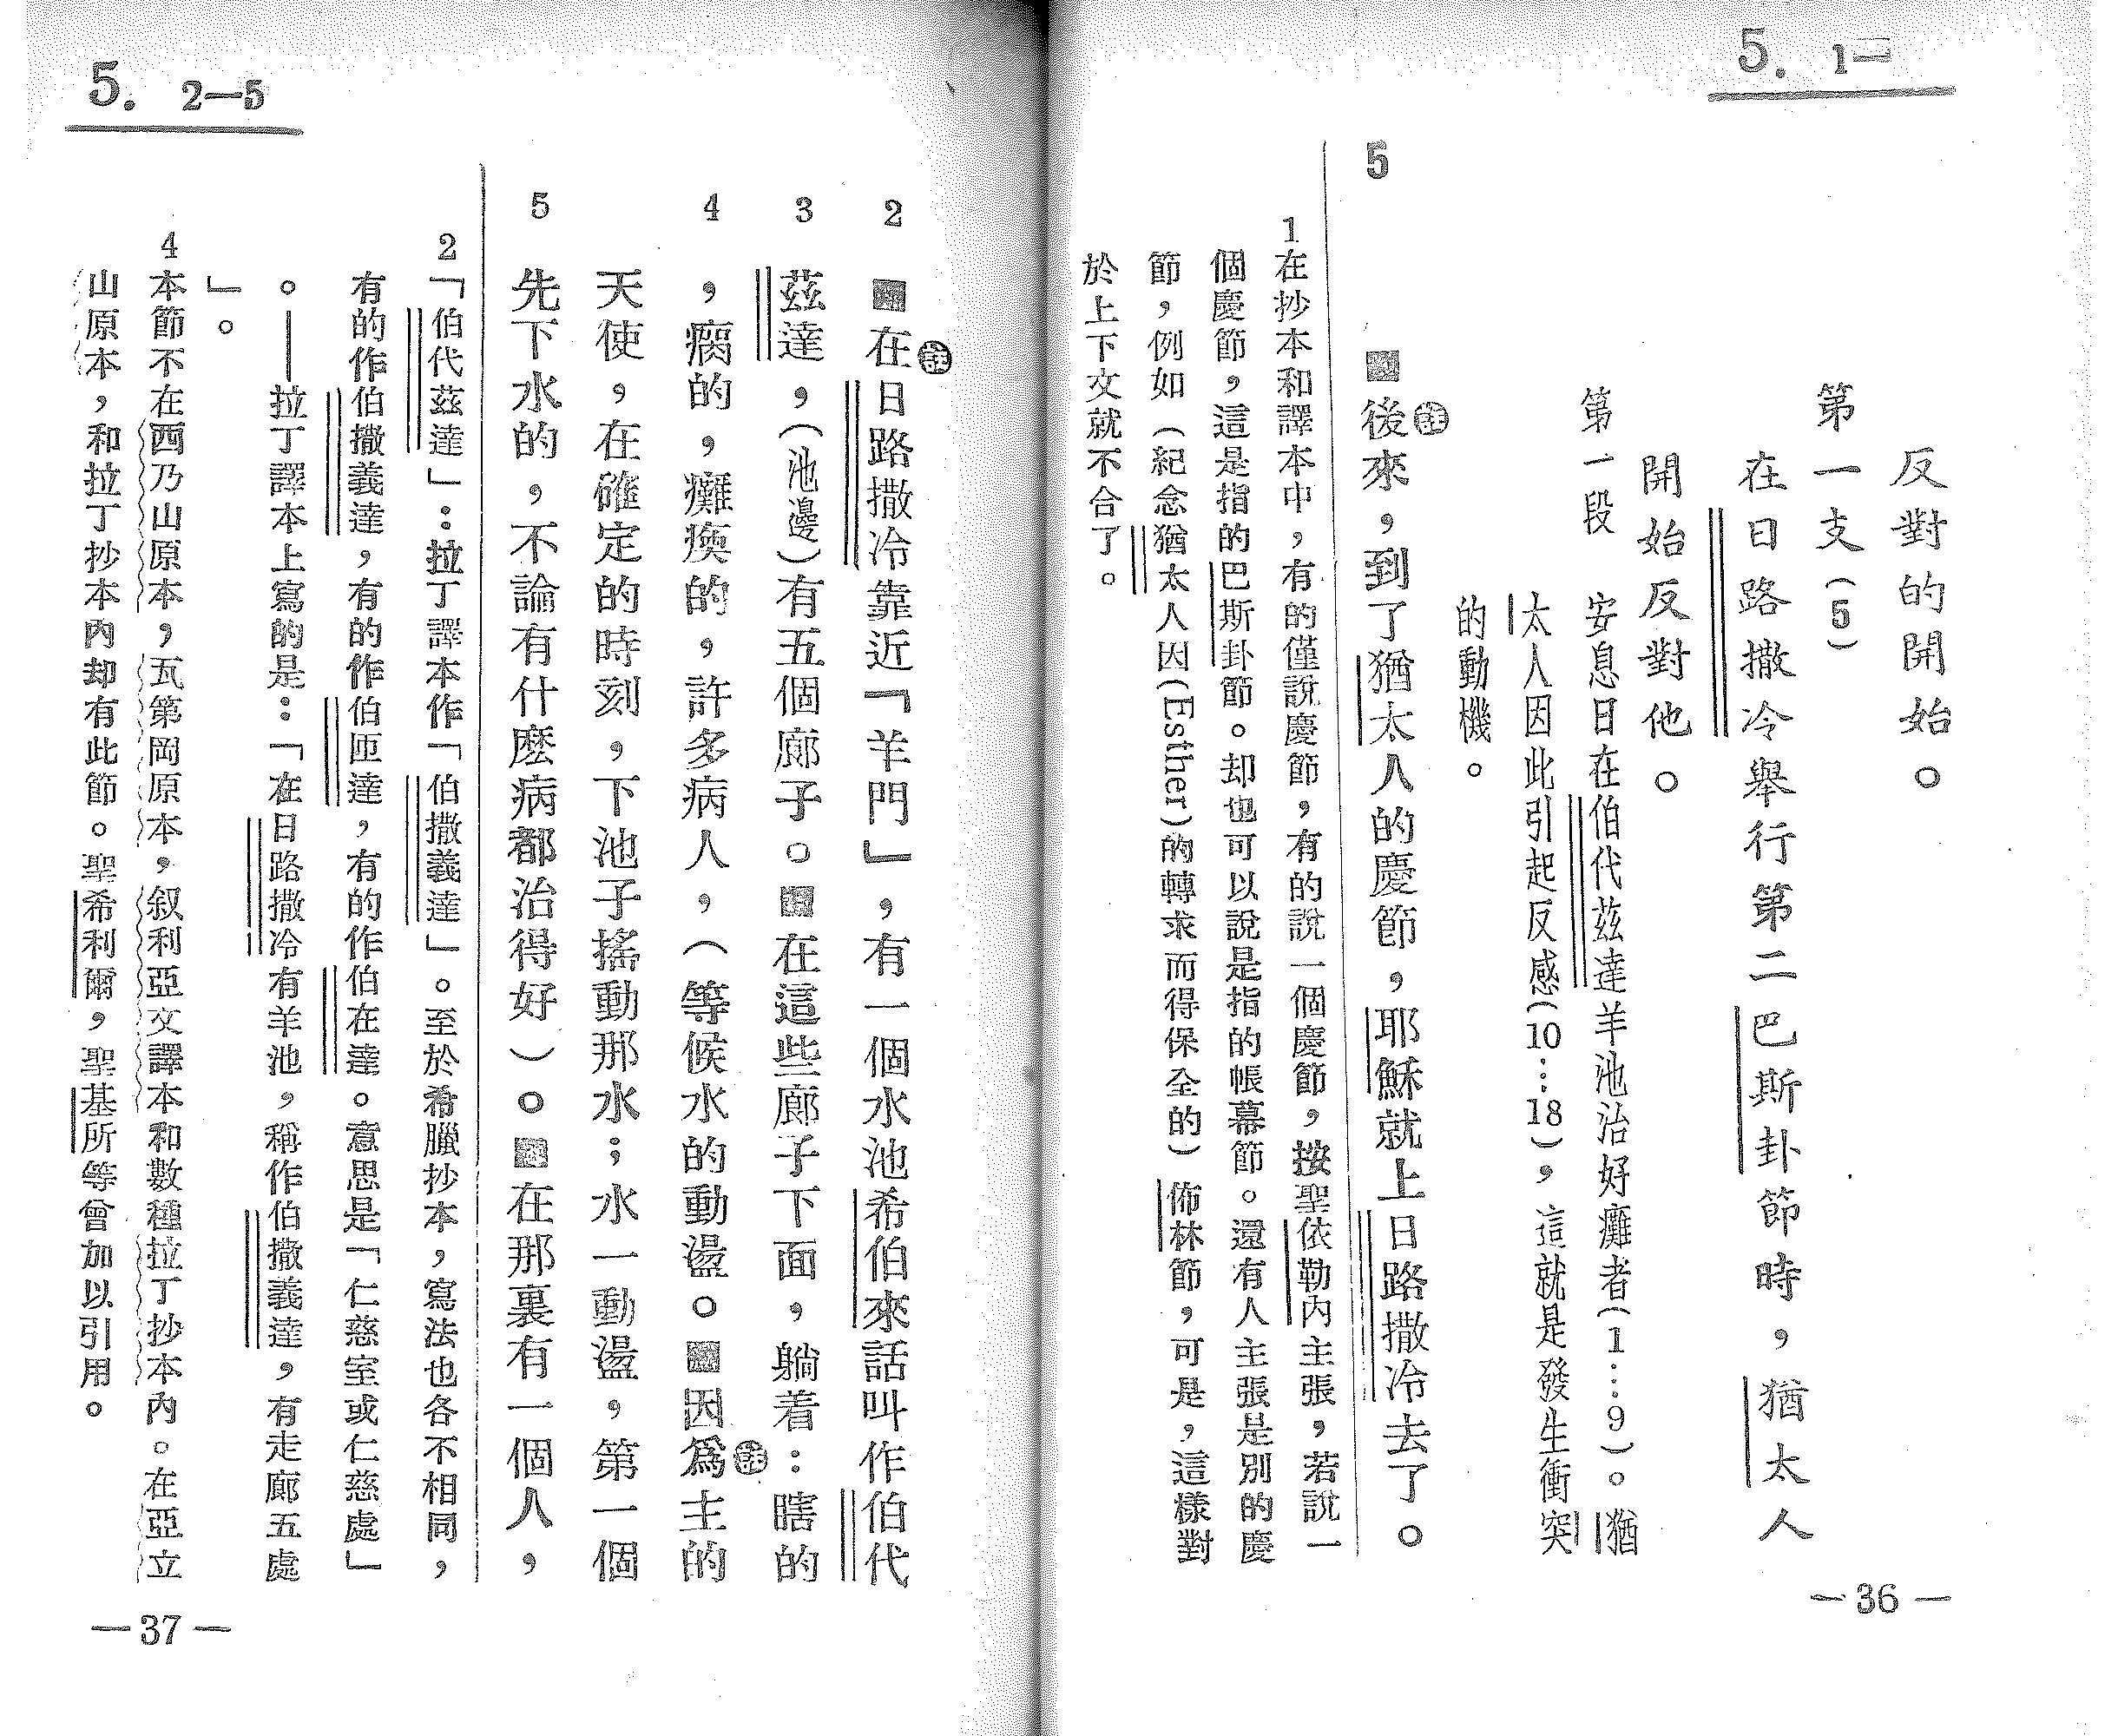 5. 1—
反對的開始。
第一支(5)
在日路撒冷舉行第二巴斯卦節時，猶太人
開始反對他。
第一段
安息日在伯代玆達羊池治好癱者(1…9)。猶
太人因此引起反感(10…18)，這就是發生衝突
的動機。
5
後來，到了猶太人的慶節，耶穌就上日路撒冷去了。
註
1在抄本和譯本中，有的僅說慶節，有的說一個慶節，按聖依勒內主張，若說一
個慶節，這是指的巴斯卦節。却也可以說是指的帳幕節。還有人主張是別的慶
節，例如(紀念猶太人因(Esther)的轉求而得保全的)佈林節，可是，這樣對
於上下文就不合了。
—36—
5. 2—5
2 在日路撒冷靠近「羊門」，有一個水池希伯來話叫作伯代
註
3 玆達，(池邊)有五個廊子。在這些廊子下面，躺着：瞎的
4 ，瘸的，癱瘓的，許多病人，(等候水的動盪。因爲主的
註
天使，在確定的時刻，下池子搖動那水；水一動盪，第一個
5 先下水的，不論有什麽病都治得好)。在那裏有一個人，
2「伯代玆達」：拉丁譯本作「伯撒義達」。至於希臘抄本，寫法也各不相同，
有的作伯撒義達，有的作伯匝達，有的作伯在達。意思是「仁慈室或仁慈處」
。——拉丁譯本上寫的是：「在日路撒冷有羊池，稱作伯撒義達，有走廊五處
」。
4本節不在西乃山原本，瓦第岡原本，叙利亞文譯本和數種拉丁抄本內。在亞立
山原本，和拉丁抄本內却有此節。聖希利爾，聖基所等曾加以引用。
—37—